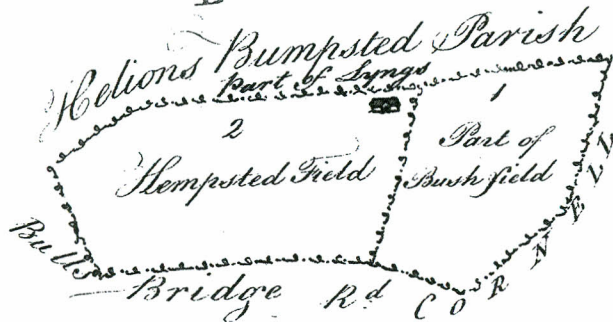 Helions Bumpsted Parish
Part of Lyngs
1
2
Part of
Hempsted Field
Bushfield
Bulls
Bridge Rd
CORNELL